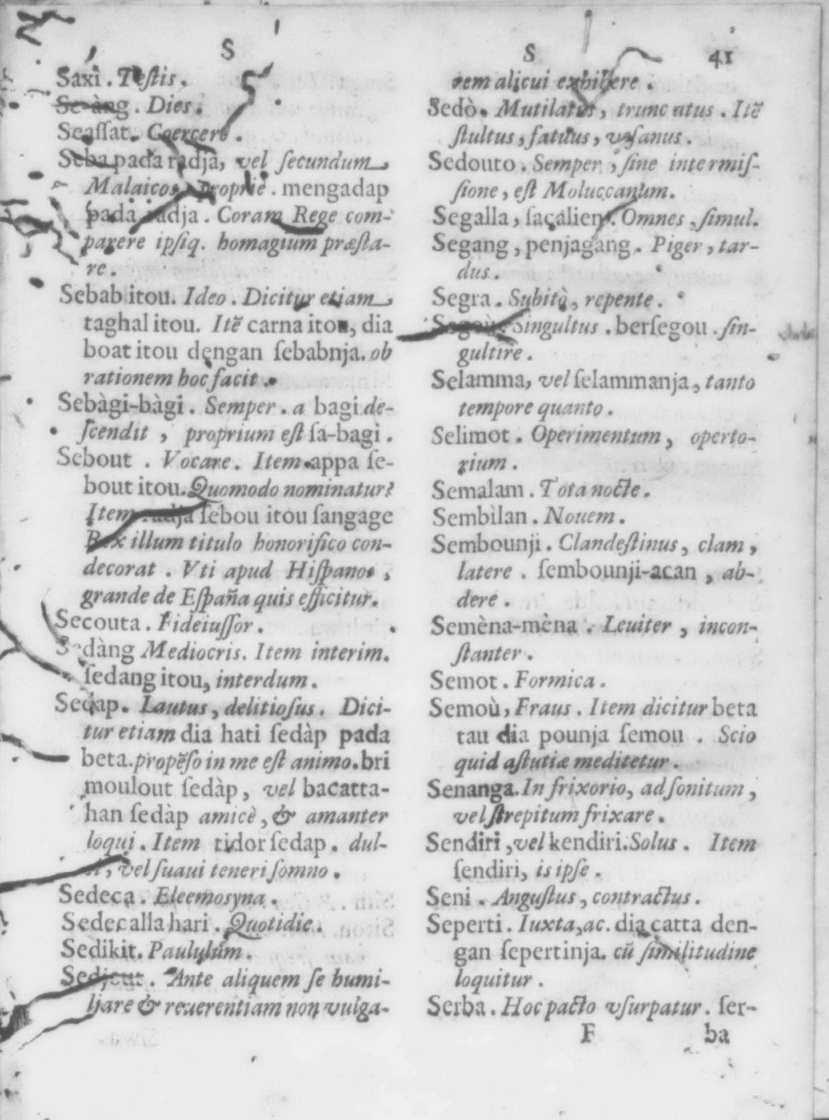 S
Saxi . Teſtis .
Se-àng . Dies .
Seaſſat. Coercere .
Seba pada radja, vel ſecundum
Malaicos, propriè . mengadap
pada radja . Coram Rege com-
parere ipſiq. homagium præſta-
re .
Sebab itou. Ideo . Dicitur etiam
taghal itou. Itē carna itou, dia
boat itou dengan ſebabnja. ob
rationem hoc facit .
Sebàgi-bàgi . Semper . a bagi de-
ſcendit , proprium eſt ſa-bagi .
Sebout . Vocare. Item appa ſe-
bout itou. Quomodo nominatur?
Item radja ſebou itou ſangage
Rex illum titulo honorifico con-
decorat . Vti apud Hiſpanos ,
grande de Eſpaña quis efficitur.
Secouta . Fideiuſſor .
Sedàng Mediocris. Item interim.
ſedang itou, interdum .
Sedap. Lautus, delitioſus . Dici-
tur etiam dia hati ſedàp pada
beta. propēſo in me eſt animo. bri
moulout ſedàp, vel bacatta-
han ſedàp amicè, & amanter
loqui . Item tidor ſedap. dul-
vel ſuaui teneri ſomno .
Sedeca . Eleemosyna .
Sedecalla hari . Quotidie .
Sedikit. Paululùm .
Sedjeut . Ante aliquem ſe humi-
liare & reuerentiam non vulga-
S 41
rem alicui exhibere .
Sedò. Mutilatus, truncatus . Itē
ſtultus, fatuus, veſanus .
Sedouto . Semper , ſine intermiſ-
ſione, eſt Moluccanum.
Segalla, ſaçalien. Omnes , ſimul.
Segang, penjagang . Piger, tar-
dus .
Segra . Subitò, repente .
Segoù. Singultus . berſegou . ſin-
gultire .
Selamma, vel ſelammanja, tanto
tempore quanto .
Selimot . Operimentum, operto-
rium .
Semalam . Tota nocte .
Sembilan . Nouem .
Sembounji . Clandeſtinus, clam ,
latere . ſembounji-acan , ab-
dere .
Semèna-mèna . Leuiter , incon-
ſtanter .
Semot . Formica .
Semoù, Fraus . Item dicitur beta
tau dia pounja ſemou . Scio
quid aſtutiæ meditetur .
Senanga. In frixorio, ad ſonitum ,
vel ſtrepitum frixare .
Sendiri , vel kendiri. Solus . Item
ſendiri, is ipſe .
Seni . Anguſtus, contractus .
Seperti . Iuxta, ac. dia catta den-
gan ſepertinja. cū ſimilitudine
loquitur .
Serba . Hoc pacto vſurpatur . ſer-
F ba